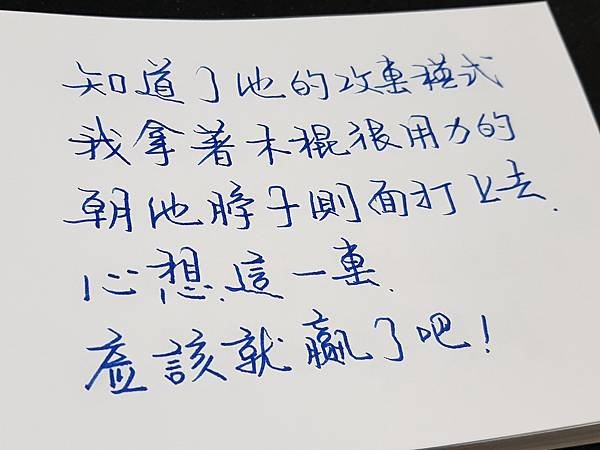 知道了他的攻擊模式
我拿著木棍很用力的
朝他脖子側面打上去.
心想.這一擊.
應該就贏了吧!